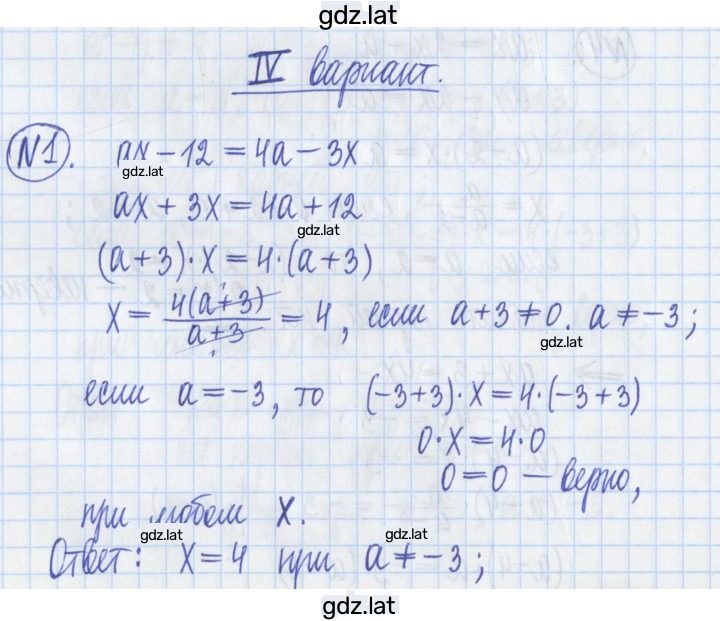 gdz.lat
IV вариант.
N1. ax - 12 = 4a - 3x
gdz.lat
ax + 3x = 4a + 12
gdz.lat
(a+3)·x = 4·(a+3)
x = 4(a+3)/a+3 = 4, если a+3≠0. a≠-3;
gdz.lat
если a=-3, то (-3+3)·x = 4·(-3+3)
0·x = 4·0
0=0 - верно,
при любом x.
gdz.lat gdz.lat
Ответ: x=4 при a≠-3;
gdz.lat